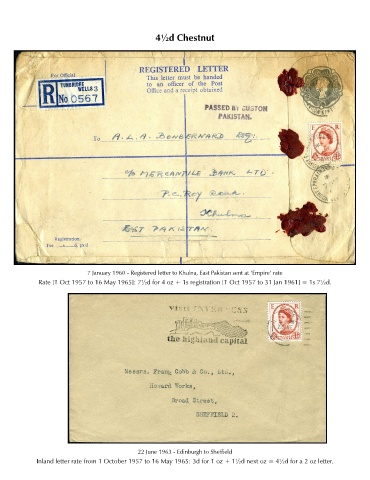 4½d Chestnut
For Official
REGISTERED LETTER
This letter must be handed
to an officer of the Post
Office and a receipt obtained.
TUNBRIDGE
WELLS 3
R No 0567
PASSED BY CUSTOM
PAKISTAN.
To A.L.A. BONBERNARD Esq:
c/o MERCANTILE BANK LTD.
P.C. Roy Road
Khulna
EAST PAKISTAN
Registration
Fee paid
7 January 1960 - Registered letter to Khulna, East Pakistan sent at 'Empire' rate
Rate [1 Oct 1957 to 16 May 1965]: 7½d for 4 oz + 1s registration [1 Oct 1957 to 31 Jan 1961] = 1s 7½d.
VISIT INVERNESS
the highland capital
Messrs. Franq Cobb & Co., Ltd.,
Howard Works,
Broad Street,
SHEFFIELD 2.
22 June 1963 - Edinburgh to Sheffield
Inland letter rate from 1 October 1957 to 16 May 1965: 3d for 1 oz + 1½d next oz = 4½d for a 2 oz letter.